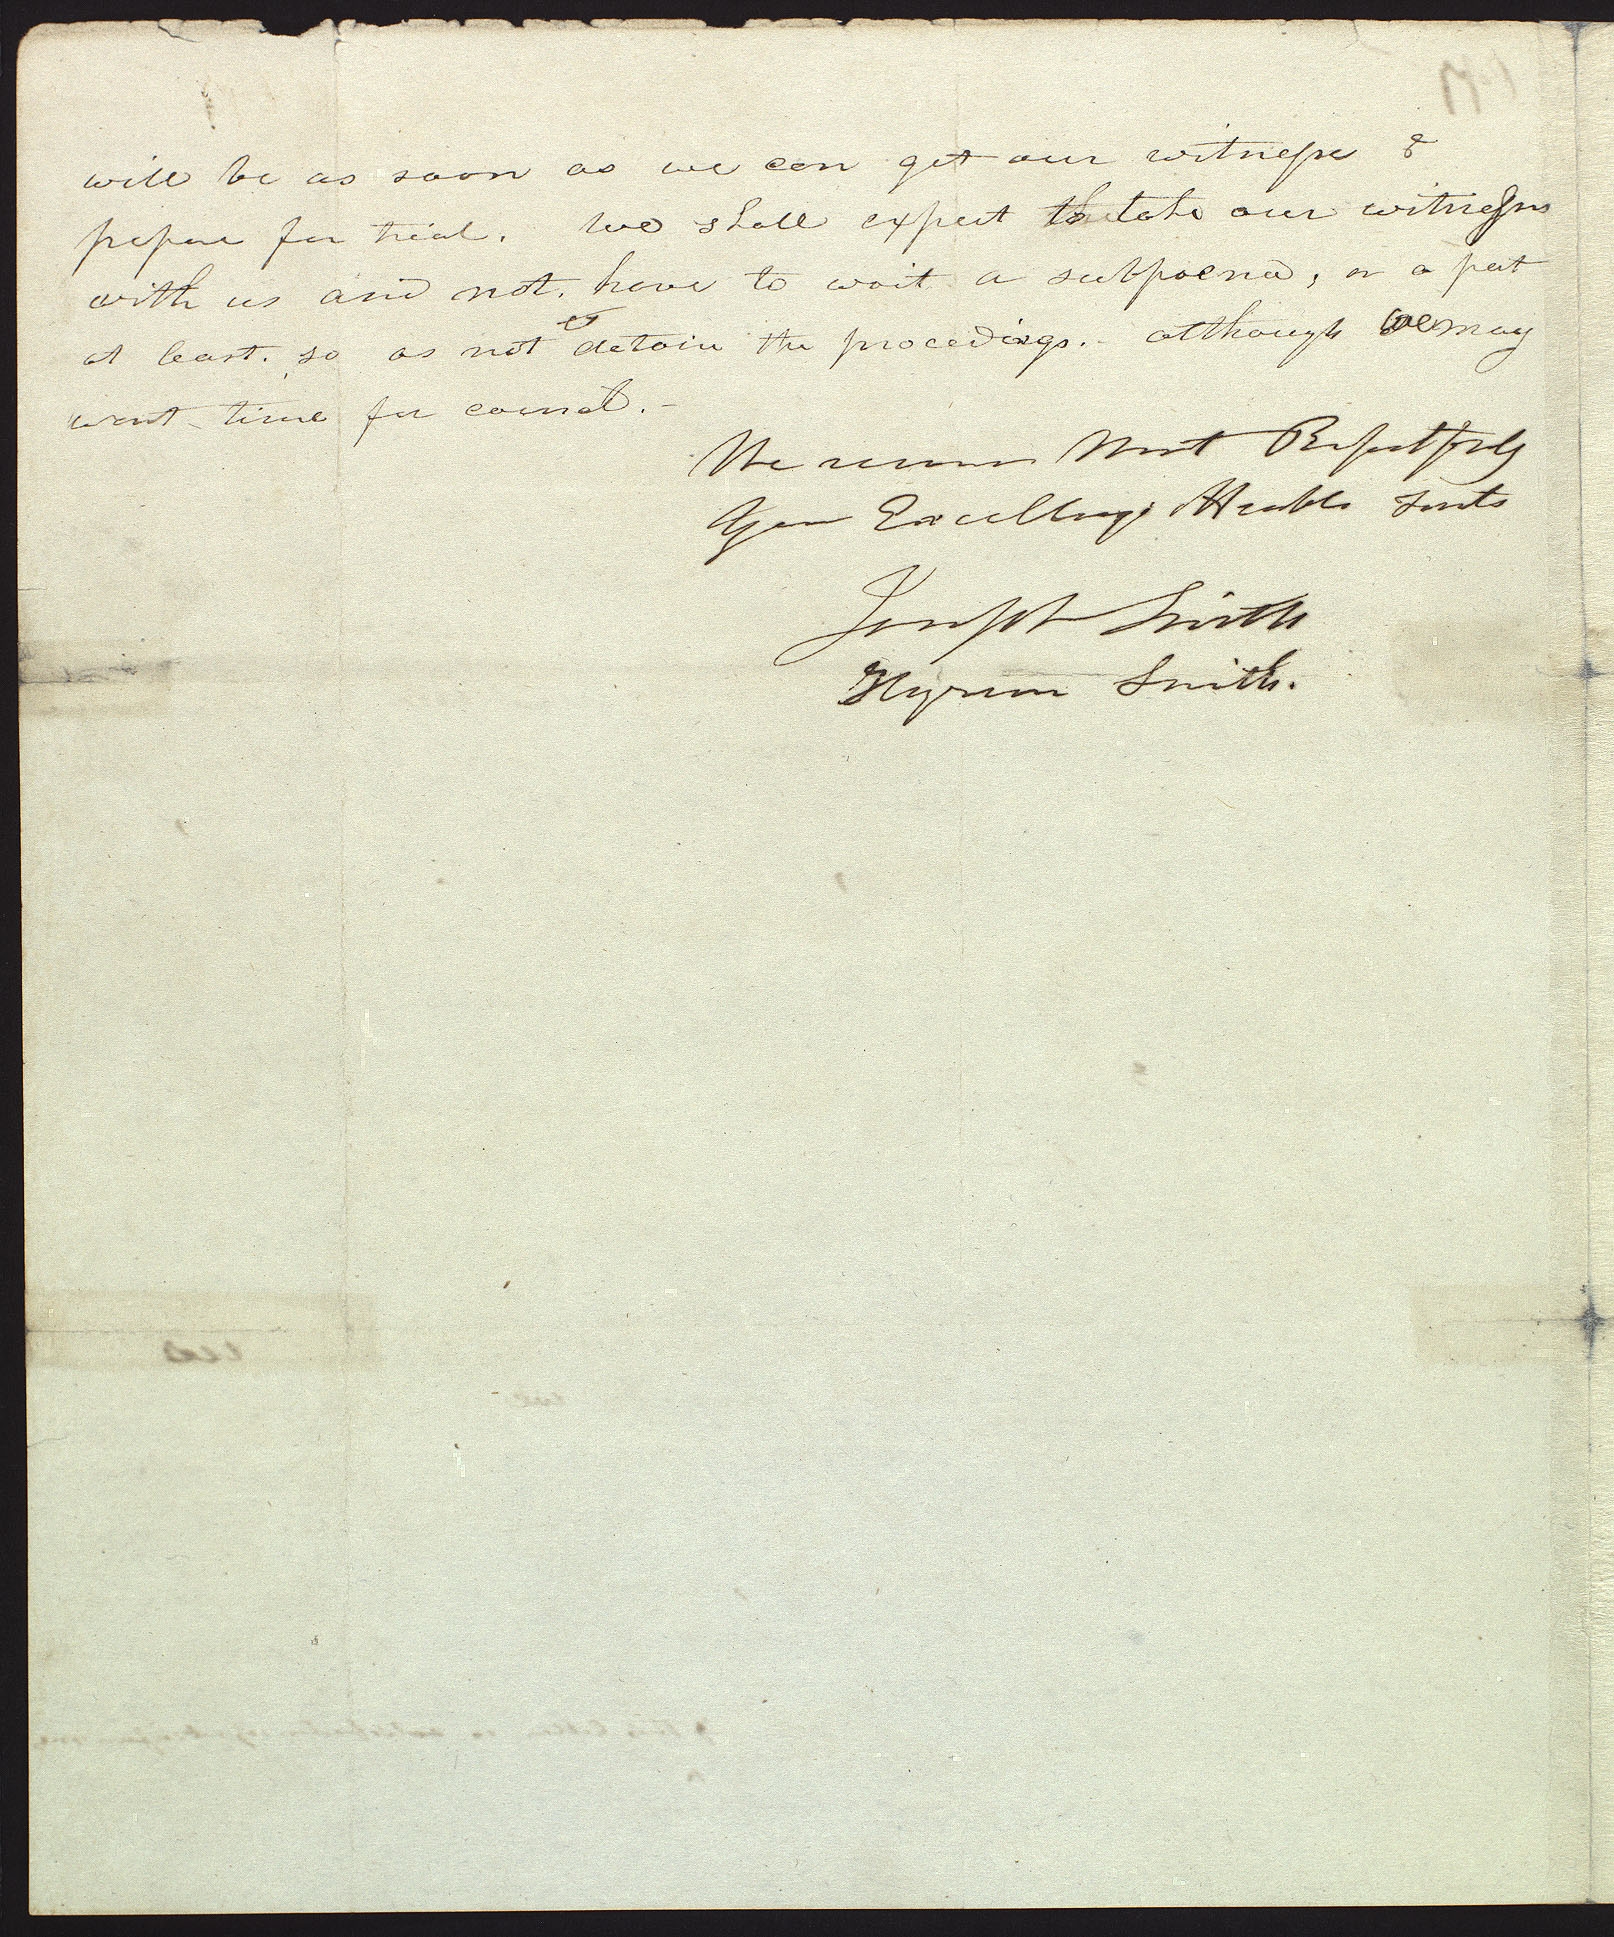 will be as soon as we can get our witnesses &
prepare for trial. we shall expect to take our witnesses
with us and not. have to wait a subpoena, or a part
at least. so as not to detain the proceedings. – although we may
want time for counsel. –
We remain Most Respectfully
Your Excellency's Humble Servts
Joseph Smith
Hyrum Smith.